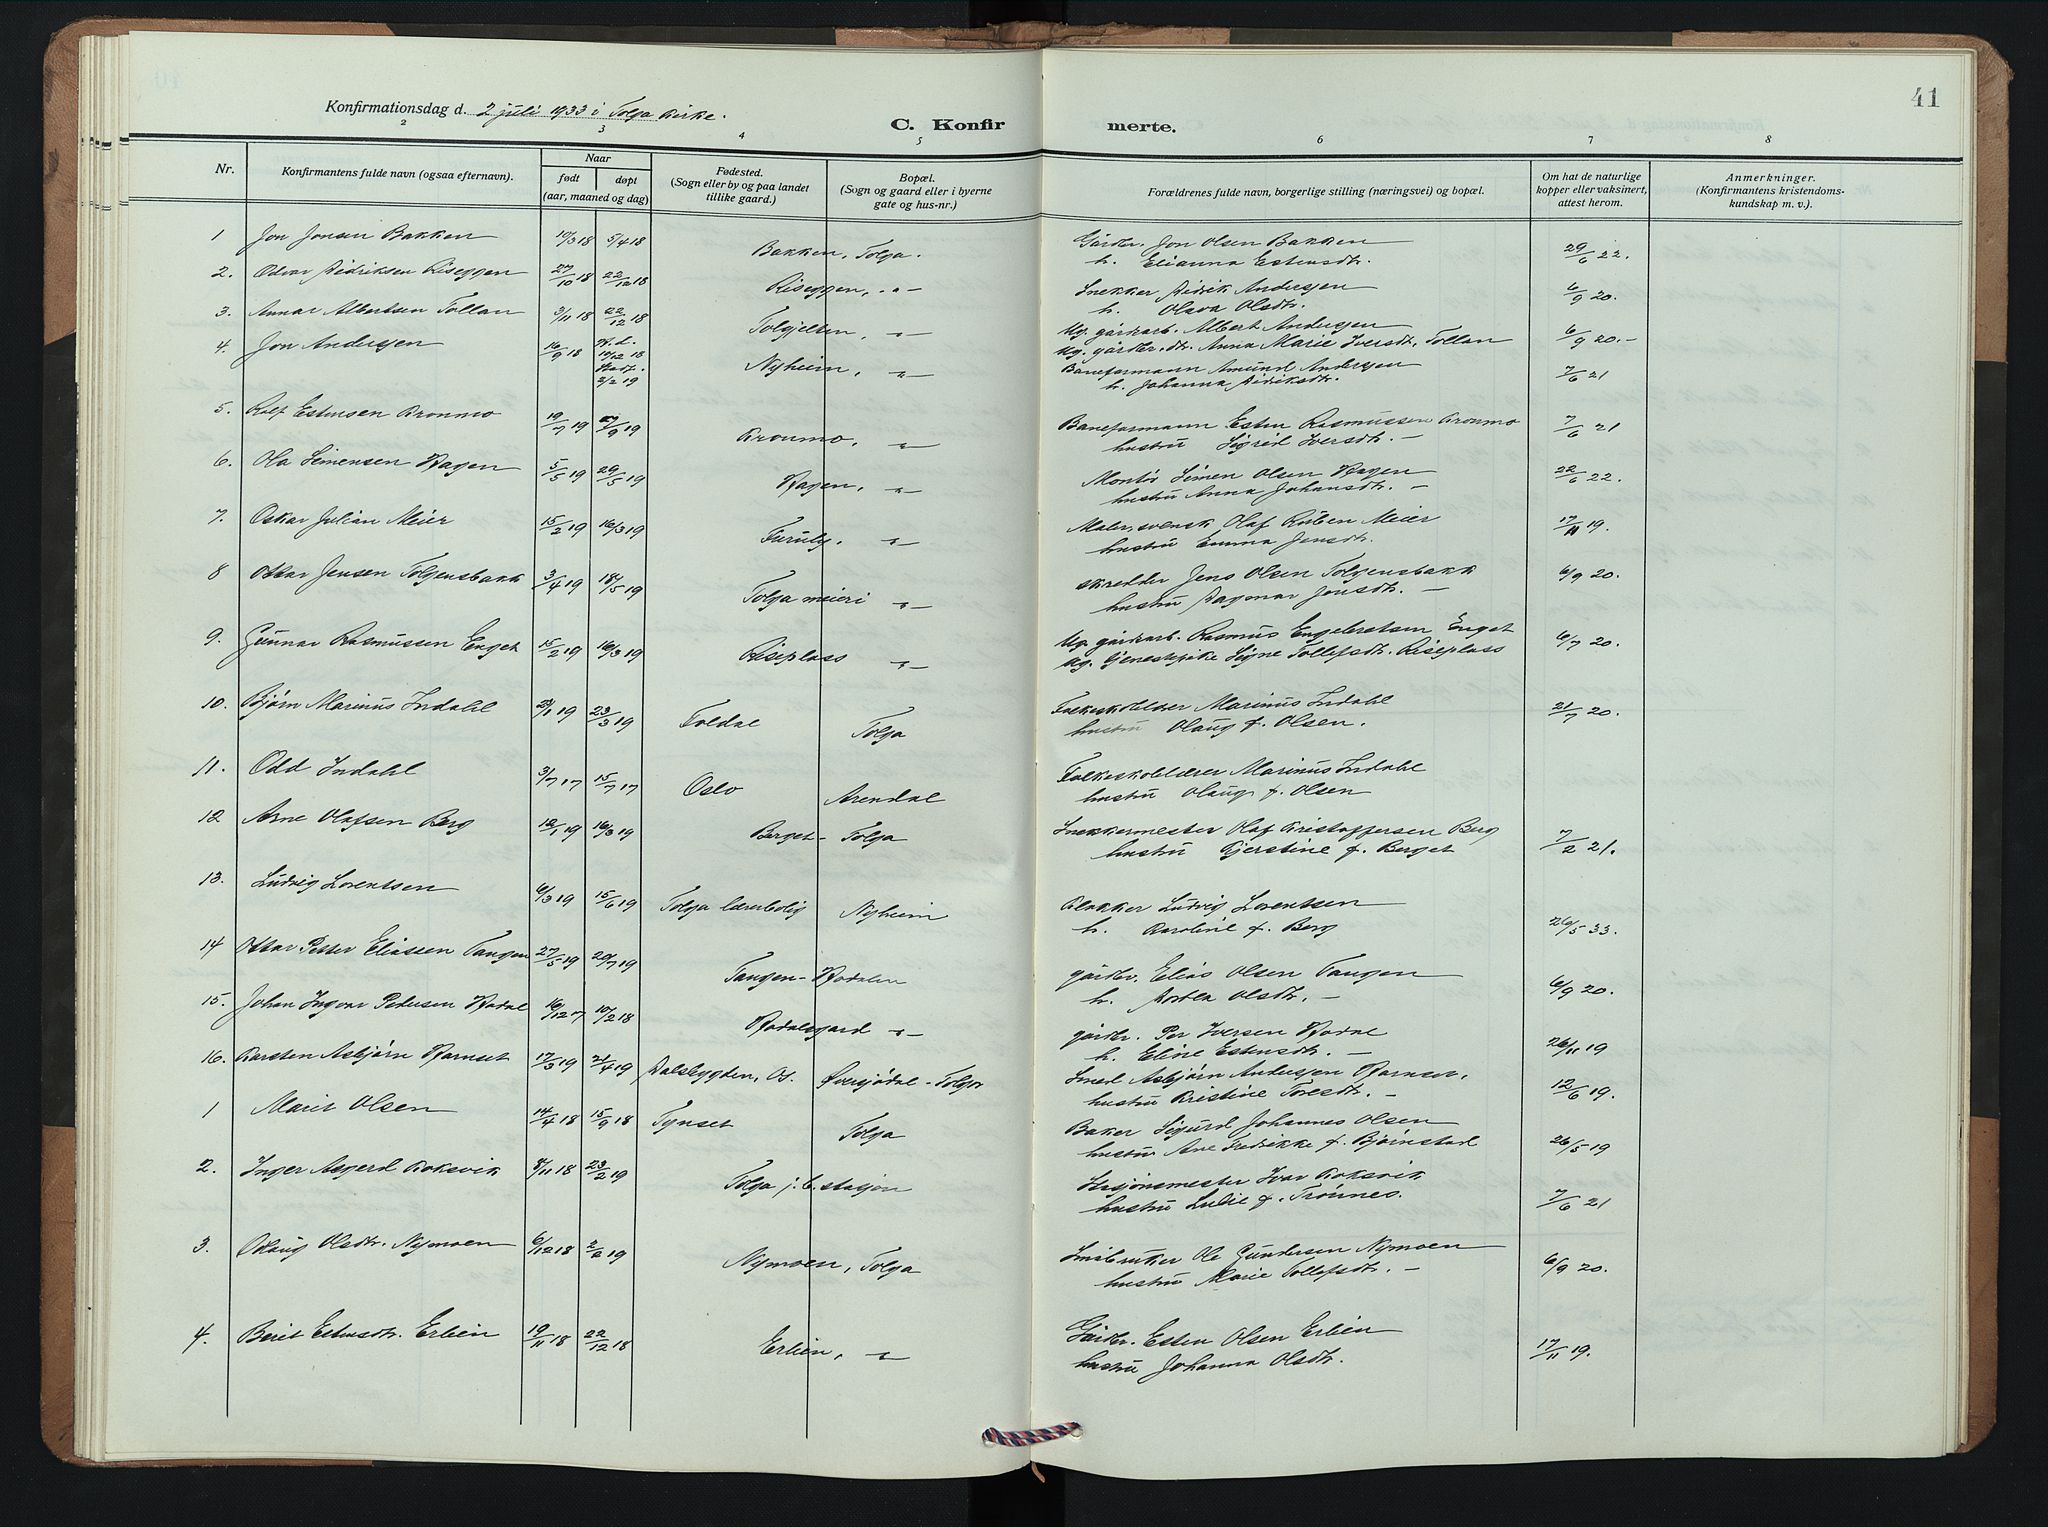 41
Konfirmationsdag d. 2 juli 1933 i Tolga kirke.
C. Konfirmerte.
2 3 4 5 6 7 8
Nr.
Konfirmantens fulde navn (ogsaa efternavn).
Naar
født døpt
(aar, maaned og dag)
Fødested.
(Sogn eller by og paa landet
tillike gaard.)
Bopæl.
(Sogn og gaard eller i byerne
gate og hus-nr.)
Forældrenes fulde navn, borgerlige stilling (næringsvei) og bopæl.
Om hat de naturlige
kopper eller vaksinert,
attest herom.
Anmerkninger.
(Konfirmantens kristendoms-
kundskap m. v.).
1 Jon Jonsen Bakken 10/3 18 5/4 18 Bakken, Tolga. Gårdbr. Jon Olsen Bakken 29/6 22.
h. Elianna Estensdtr.
2. Odvar Didriksen Riseggen 27/10 18 22/12 18 Riseggen, -"- Snekker Didrik Andersen 6/9 20.
h. Olava Olsdtr.
3. Annar Albertsen Tollan 3/11 18 22/12 18 Tolgjelten, -"- Ug. gårdarb. Albert Andersen 6/9 20.-
Ug. gårdbr. dtr. Anna Marie Iversdtr. Tollan
4. Jon Andersen 16/9 18 Hj.d. 10/12 18 Stadf. 2/2 19 Nyheim, -"- Baneformann Amund Andersen 7/6 21
h. Johanna Didriksdtr.
5. Rolf Estensen Kronmo 19/7 19 7/9 19 Kronmo, -"- Baneformann Esten Rasmussen Kronmo 7/6 21
hustru Sigrid Iversdtr. -
6. Ola Simensen Hagen 5/5 19 29/5 19 Hagen, -"- Montør Simen Olsen Hagen 22/6 22.
hustru Anna Johansdtr. -
7. Oskar Julian Meier 15/2 19 16/3 19 Furuly, -"- Maler, svensk Olaf Ruben Meier 17/11 19.
hustru Emma Jensdtr.
8 Ottar Jensen Tolgensbakk 3/4 19 18/5 19 Tolga meieri -"- skredder Jens Olsen Tolgensbakk 6/9 20.
hustru Dagmar Jonsdtr. -
9. Gunnar Rasmussen Enget 15/2 19 16/3 19 Riseplass -"- Ug. gårdarb. Rasmus Engebretsen Enget 6/7 20.
Ug. tjenestepike Signe Tollefsdtr. Riseplass
10. Bjørn Marinus Indahl 23/1 19 23/3 19 Foldal Tolga Folkeskolelærer Marinus Indahl 21/7 20.
hustru Olaug f. Olsen.
11. Odd Indahl 3/7 17 15/7 17 Oslo Arendal Folkeskolelærer Marinus Indahl
hustru Olaug f. Olsen
12 Arne Olafsen Berg 12/1 19 16/3 19 Berget - Tolga Snekkermester Olaf Kristoffersen Berg 7/2 21.
hustru Kjerstine f. Berget
13. Ludvig Lorentsen 6/3 19 15/6 19 Tolga lærerbolig Nyheim Klokker Ludvig Lorentsen 26/5 33.
h. Karoline f. Berg
14 Ottar Petter Eliassen Tangen 27/5 19 20/7 19 Tangen - Hodalen gårdbr. Elias Olsen Tangen 6/9 20.
h. Dortea Olsdtr. -
15. Johan Ingvar Pedersen Hodal 16/12 7 10/2 18 Hodalsgard -"- gårdbr. Per Iversen Hodal 26/11 19
h. Eline Estensdtr. -
16. Karsten Asbjørn Ramset 17/3 19 21/4 19 Dalsbygden, Os. Øversjødal - Tolga Smed Asbjørn Andersen Ramset, 12/6 19.
hustru Kristine Toresdtr. -
1 Marit Olsen 14/4 18 15/9 18 Tynset Tolga Baker Sigurd Johannes Olsen 26/5 19
hustru Ane Fredrikke f. Bjørnstad
2. Inger Asgerd Koksvik 8/11 18 23/2 19 Tolga j.b. stasjon Stasjonsmester Ivar Koksvik 7/6 21
hustru Lulie f. Trønnes.
3. Oddaug Olsdtr. Nymoen 6/12 18 2/2 19 Nymoen, Tolga Småbruker Ole Gundersen Nymoen 6/9 20.
hustru Marie Tollefsdtr. -
4. Berit Estensdtr. Erlien 19/11 18 22/12 18 Erlien, -"- Gårdbr. Esten Olsen Erlien 17/11 19.
hustru Johanna Olsdtr.